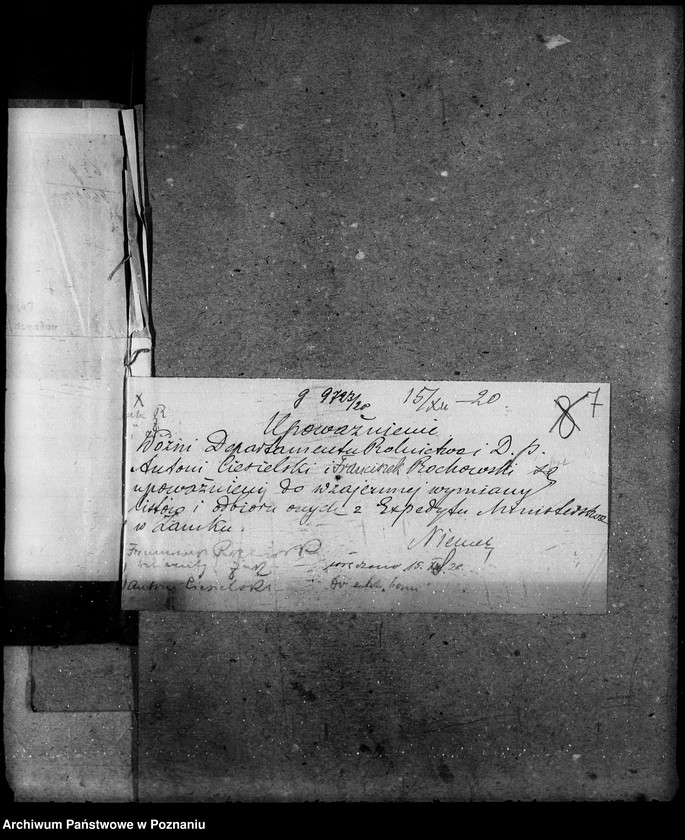 X
g 9723/20 15/XII - 20
8 7
Upoważnienie
Woźni Departamentu Rolnictwa i D. p.
Antoni Ciesielski i Franciszek Rochowski są
upoważnieni do wzajemnej wymiany
listów i odbioru onych z Expedytu Ministerstwa
w Zamku.
Niemer
Franciszek
wręczono 15. XII 20
Antoni Ciesielski
Archiwum Państwowe w Poznaniu